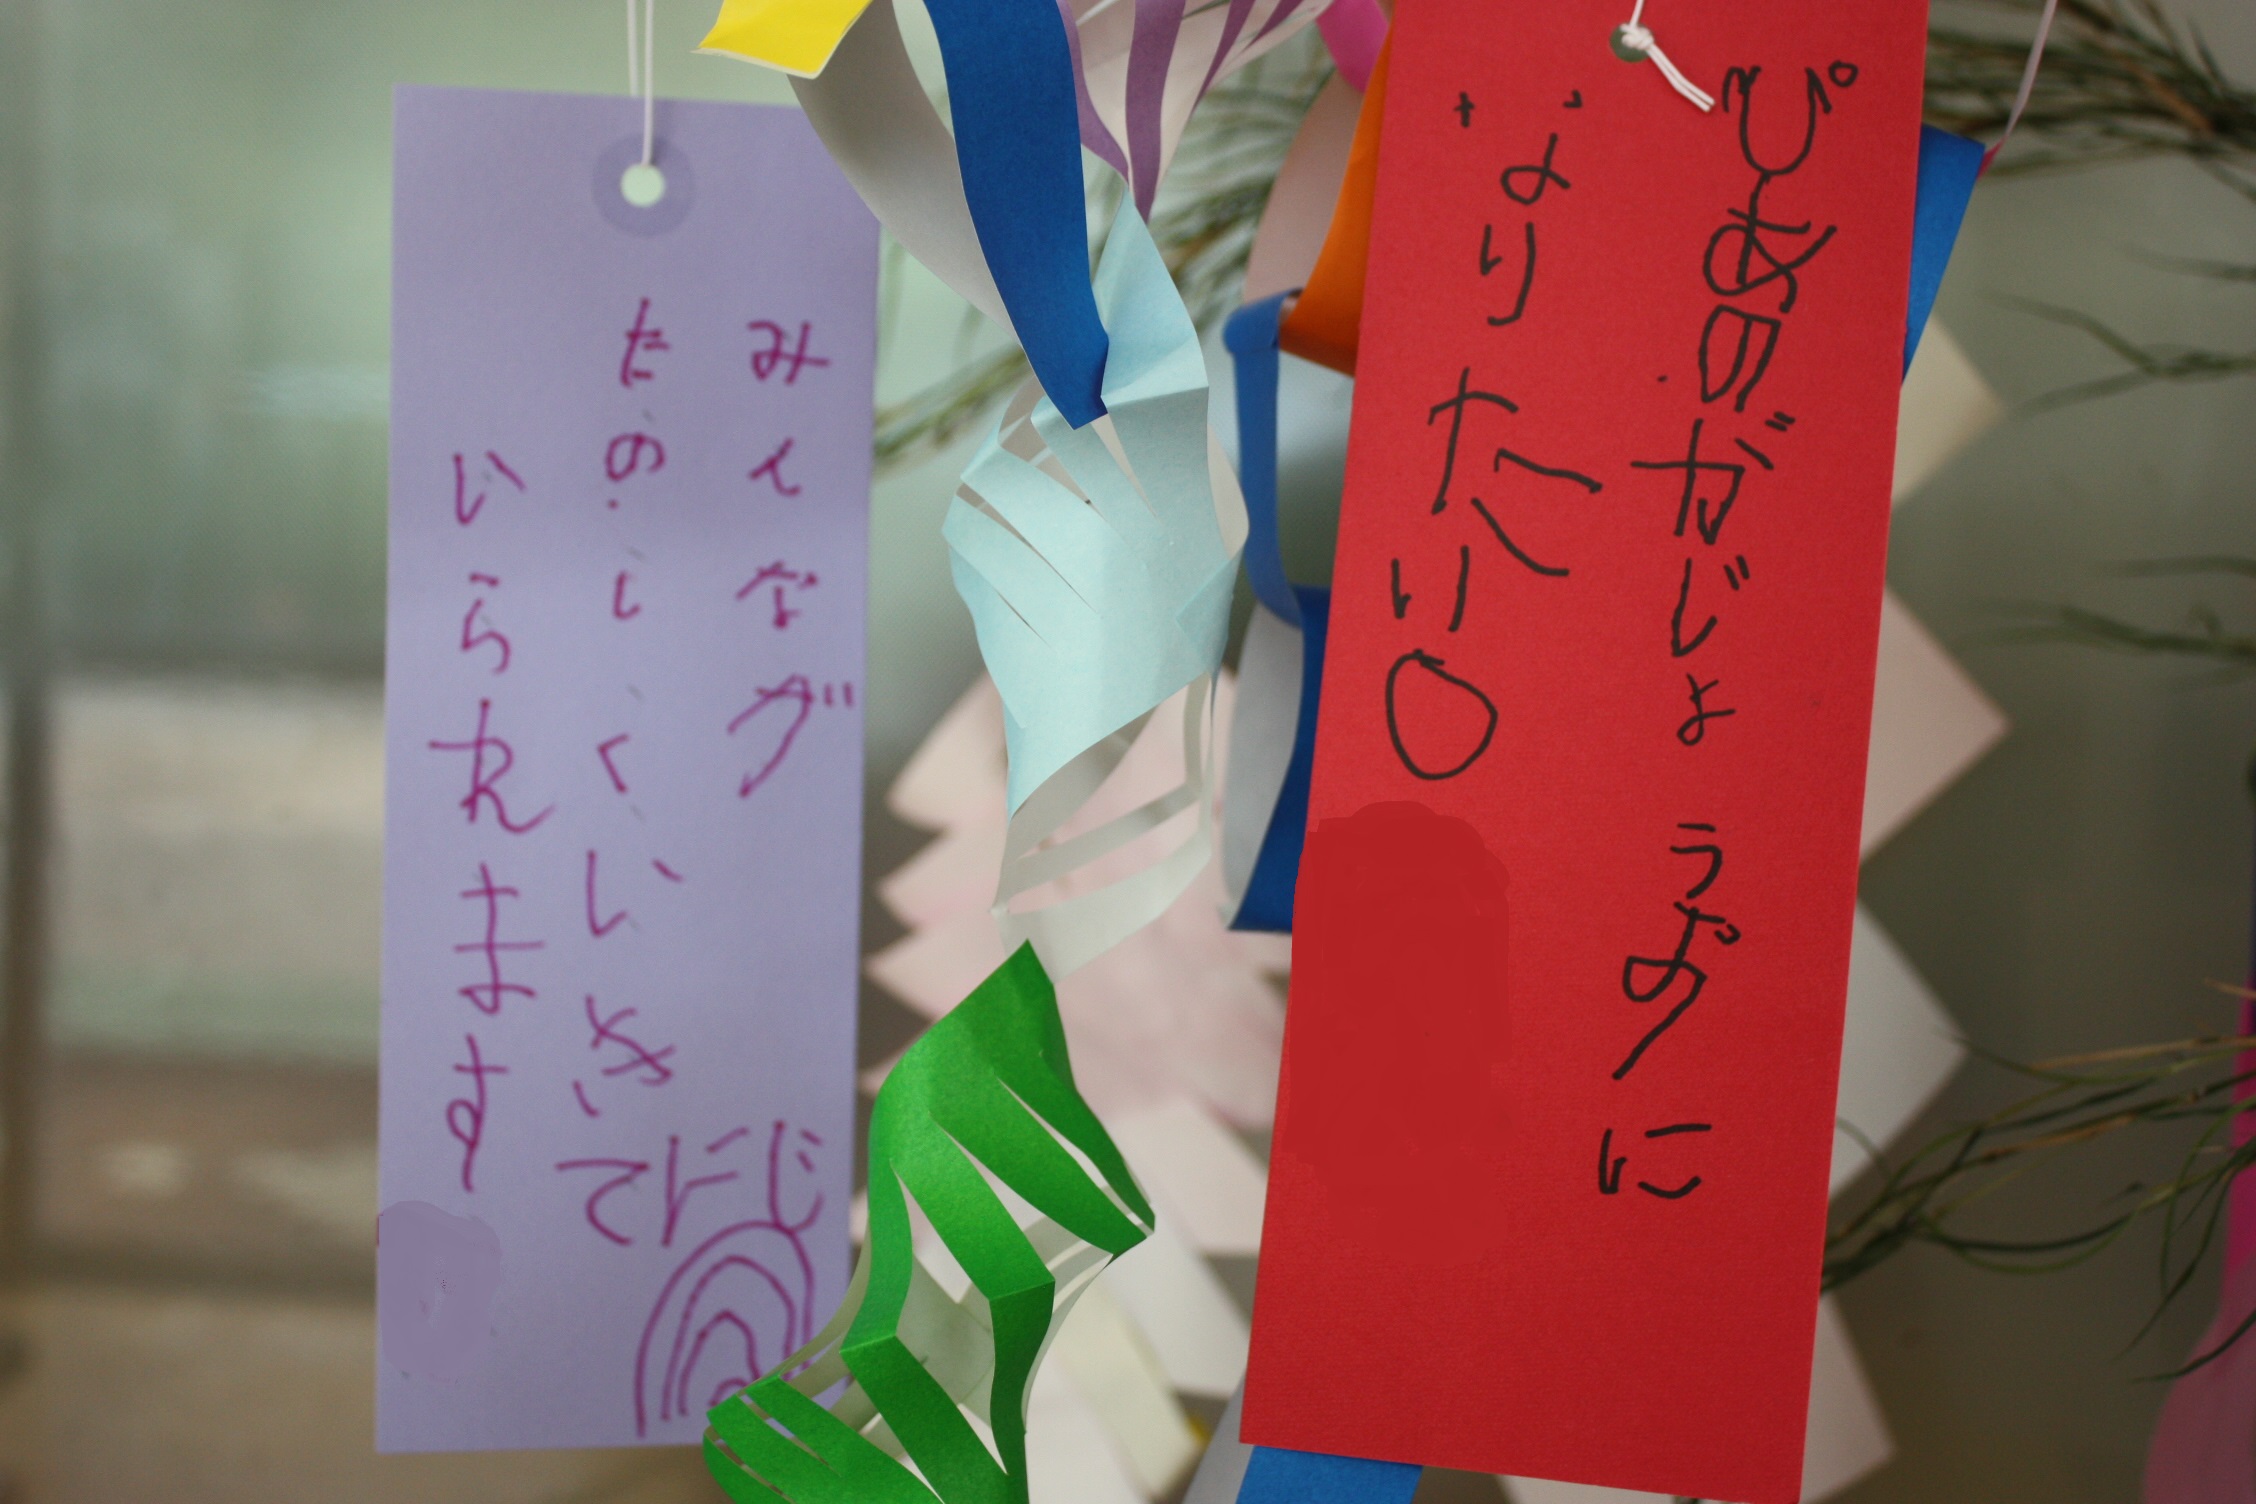 ぴあのがじょうずに
なりたい。
みんなが
たのしくいきて
いられます
にじ